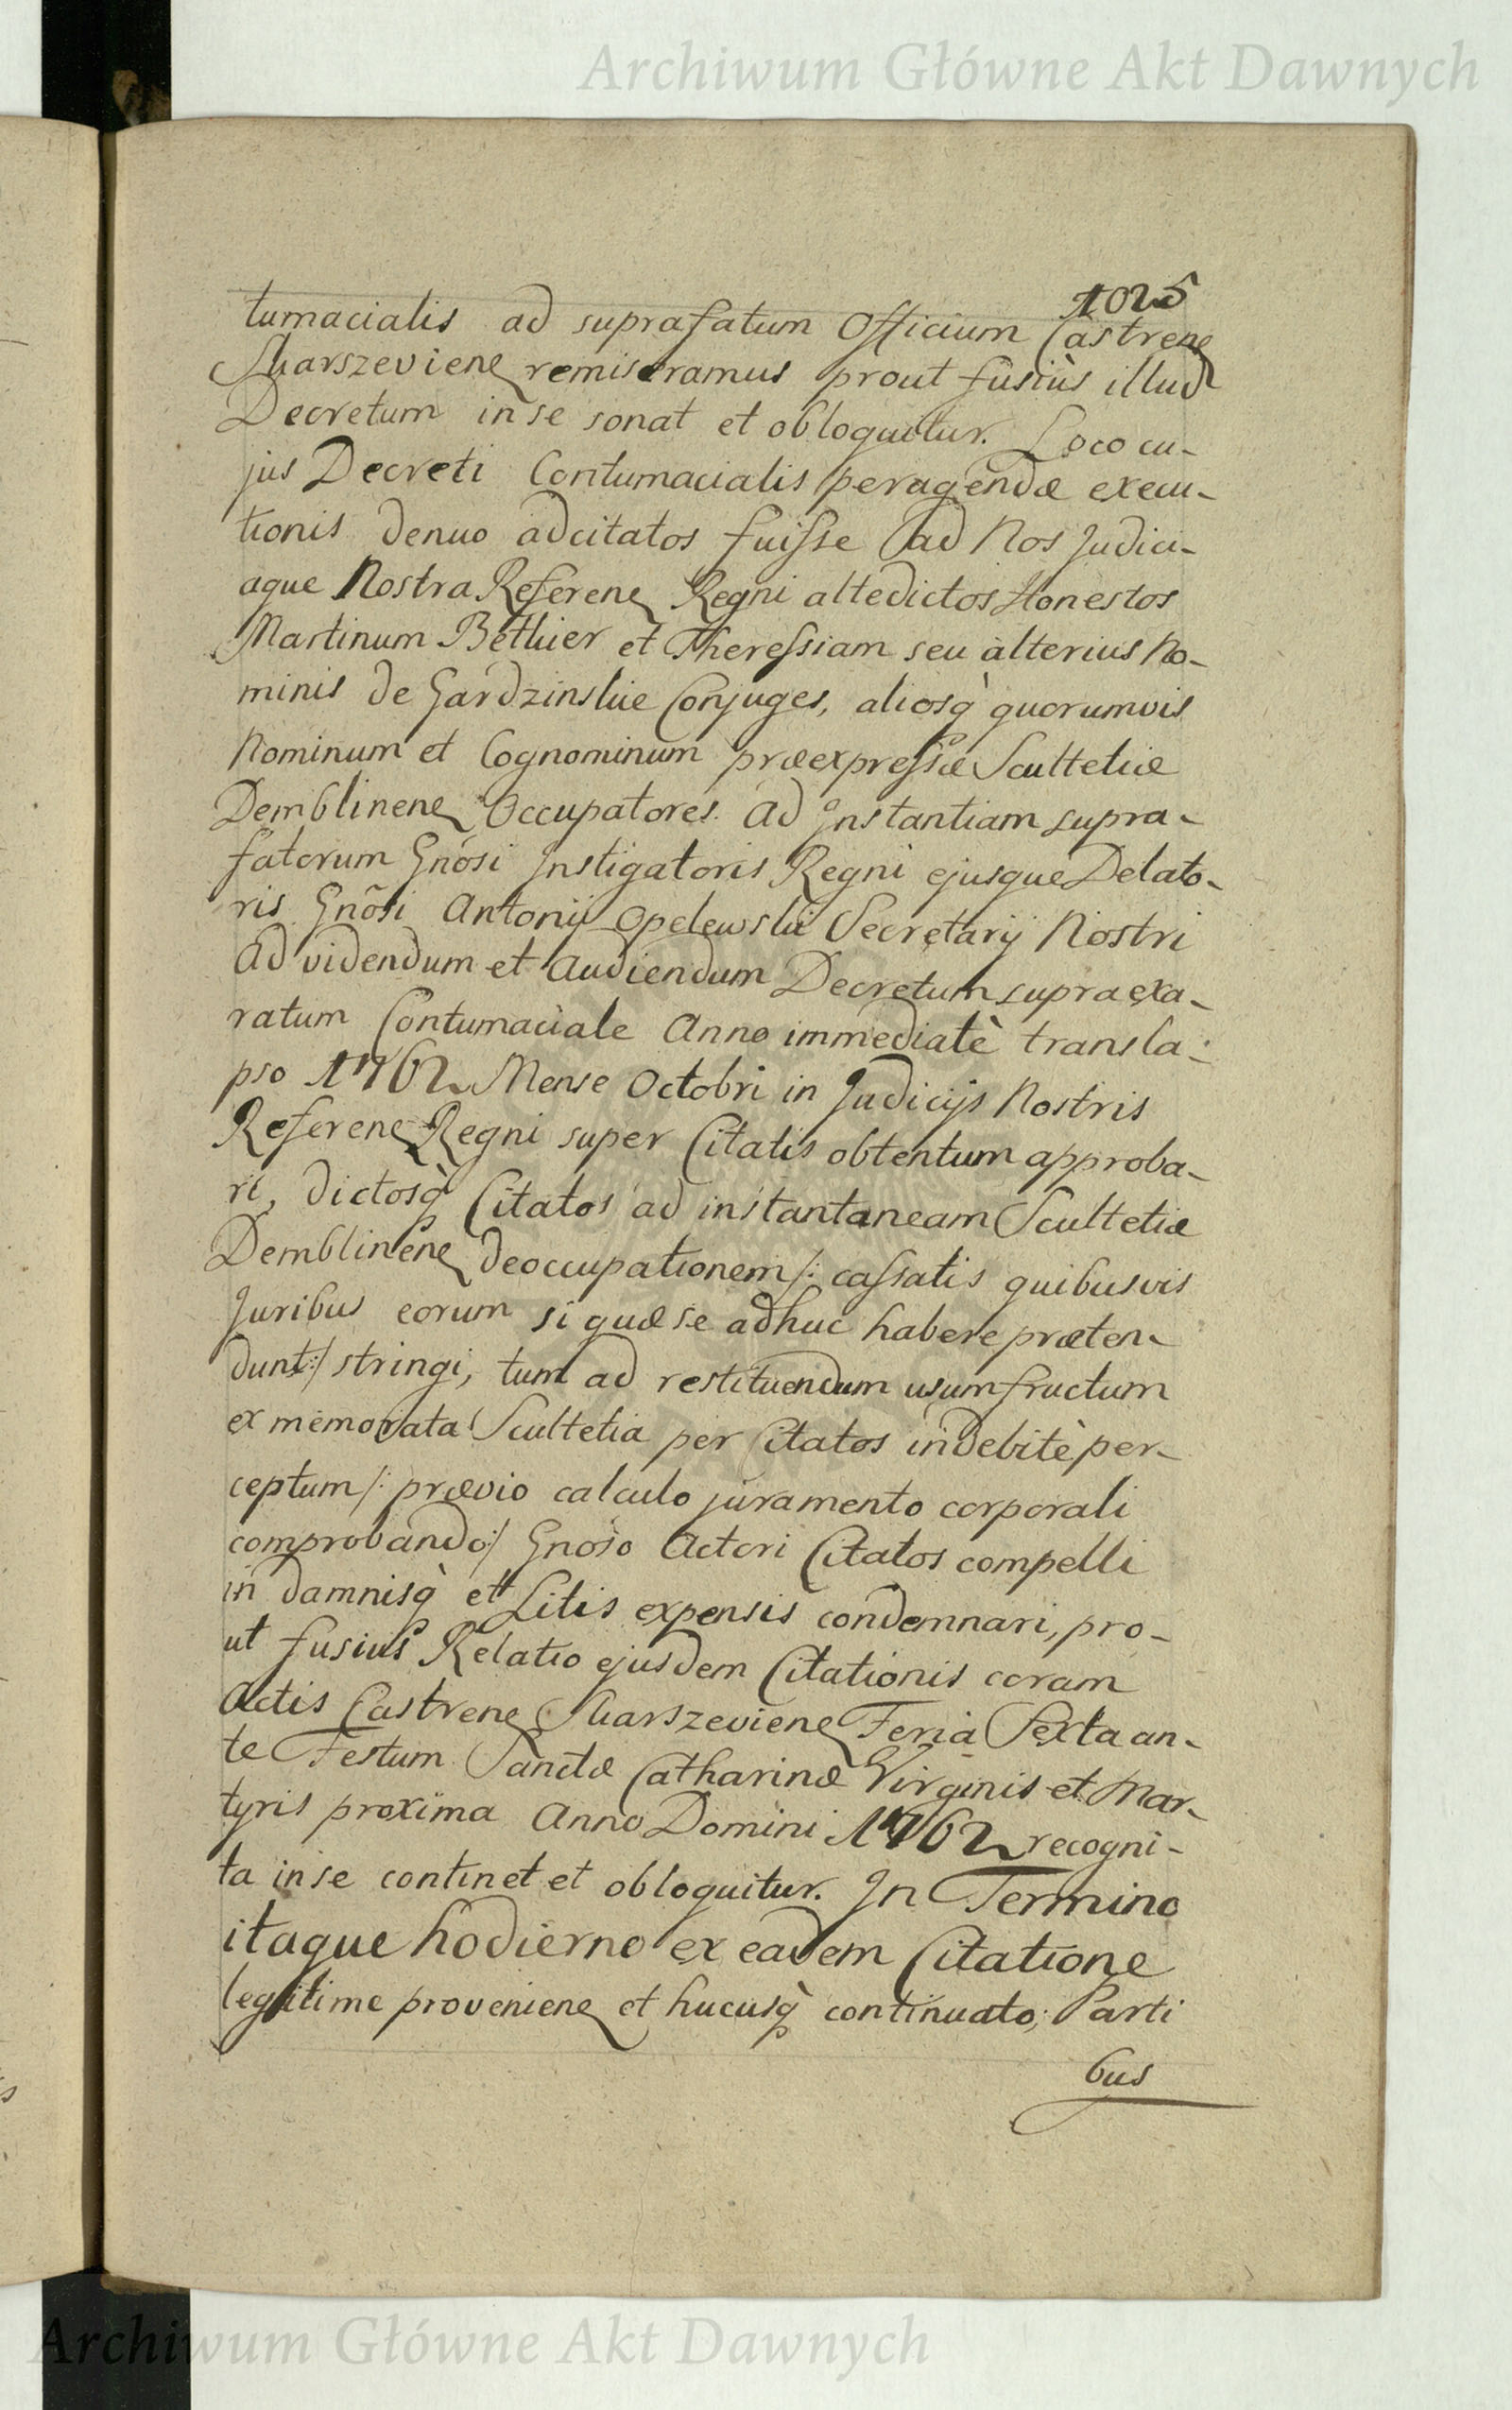 Archiwum Główne Akt Dawnych
1025
tumacialis ad suprafatum Officium Castrene
Skarszeviene remiseramus prout fusiùs illud
Decretum in se sonat et obloquitur. Loco cu-
jus Decreti Contumacialis peragendæ execu-
tionis denuo adcitatos fuisse ad Nos Judici-
aque Nostra Referene Regni altedictos Honestos
Martinum Bethier et Theressiam seu alterius No-
minis de Gardzinskie Conjuges, aliosq̀ quorumvis
Nominum et Cognominum præexpressæ Scultetiæ
Demblinene Occupatores. Ad Instantiam supra-
fatorum Gnõsi Instigatoris Regni ejusque Delato-
ris Gnõsi Antonij Opelewski Secretarij Nostri
Ad videndum et Audiendum Decretum supraexa-
ratum Contumaciale Anno immediatè transla-
pso 1762 Mense Octobri in Judicijs Nostris
Referene Regni super Citatis obtentum approba-
ri, dictosq̀ Citatos ad instantaneam Scultetiæ
Demblinene deoccupationem /: cassatis quibusvis
Juribus eorum si quæ se adhuc habere præten-
dunt :/ stringi, tum ad restituendum usumfructum
ex memorata Scultetia per Citatos indebitè per-
ceptum /: prævio calculo juramento corporali
comprobando :/ Gnoso Actori Citatos compelli
in damnisq̀ et Litis expensis condemnari, pro-
ut fusius Relatio ejusdem Citationis coram
Actis Castrene Skarszeviene Feria Sexta an-
te Festum Sanctæ Catharinæ Virginis et Mar-
tyris proxima Anno Domini 1762 recogni-
ta in se continet et obloquitur. In Termino
itaque hodierno ex eadem Citatione
legitime proveniene et hucusq̀ continuato; Parti
bus
Archiwum Główne Akt Dawnych